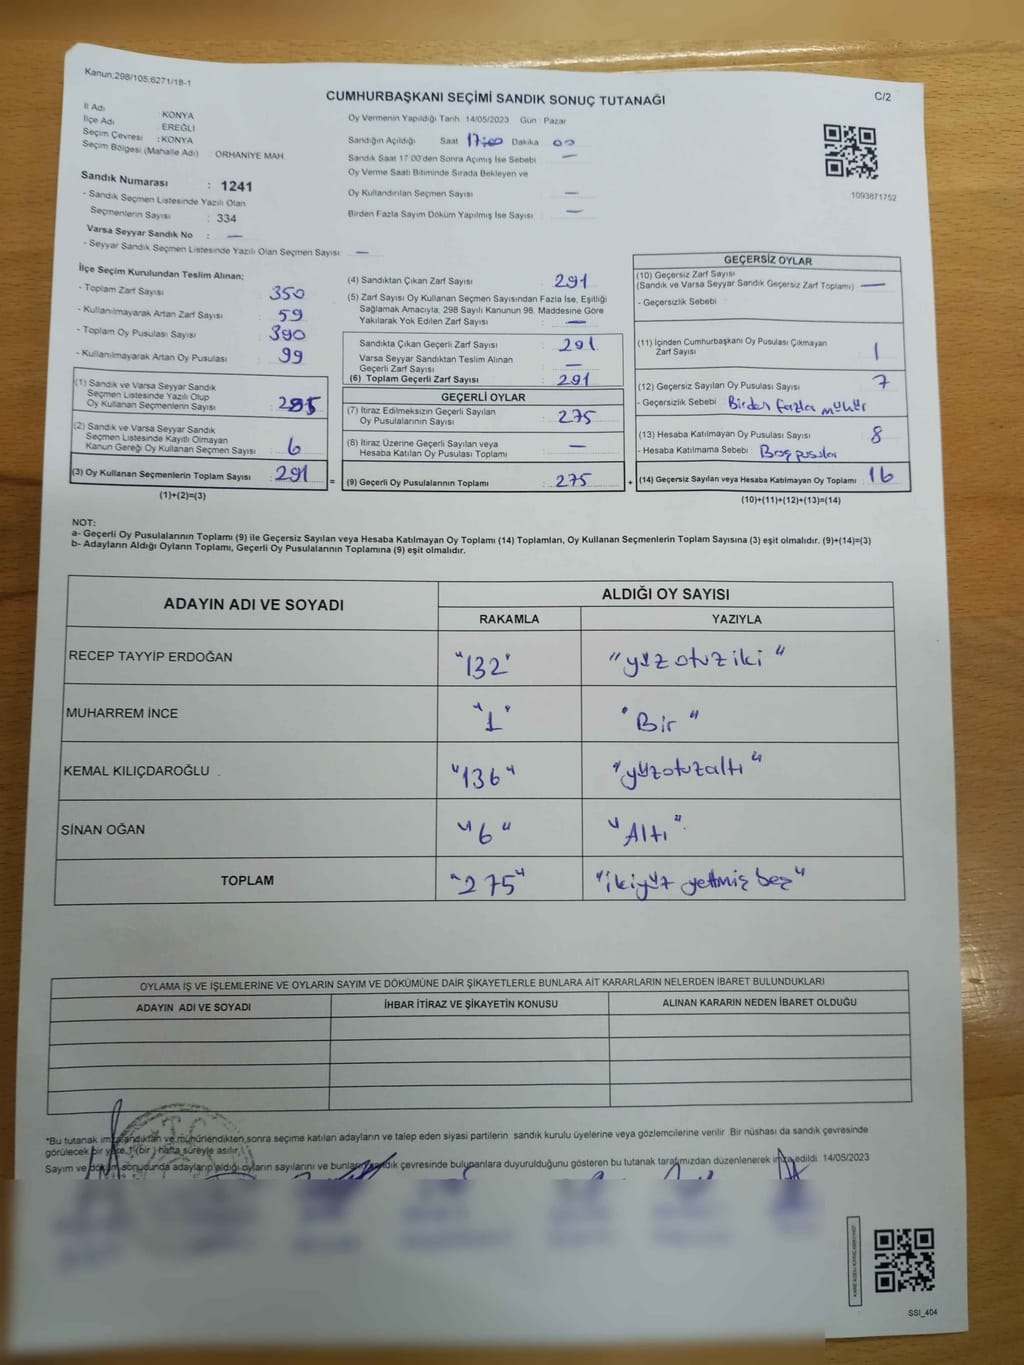 Kanun;298/105,6271/18-1
C/2
CUMHURBAŞKANI SEÇİMİ SANDIK SONUÇ TUTANAĞI
İl Adı KONYA
İlçe Adı EREĞLİ
Seçim Çevresi :KONYA
Seçim Bölgesi (Mahalle Adı) ORHANİYE MAH
Sandık Numarası : 1241
- Sandık Seçmen Listesinde Yazılı Olan
Seçmenlerin Sayısı : 334
Varsa Seyyar Sandık No : —
- Seyyar Sandık Seçmen Listesinde Yazılı Olan Seçmen Sayısı : —
Oy Vermenin Yapıldığı Tarih 14/05/2023 Gün : Pazar
Sandığın Açıldığı Saat 17:00 Dakika 00
Sandık Saat 17 00'den Sonra Açımış İse Sebebi —
Oy Verme Saati Bitiminde Sırada Bekleyen ve
Oy Kullandırılan Seçmen Sayısı —
Birden Fazla Sayım Döküm Yapılmış İse Sayısı —
1093871752
İlçe Seçim Kurulundan Teslim Alınan;
- Toplam Zarf Sayısı 350
- Kullanılmayarak Artan Zarf Sayısı 59
- Toplam Oy Pusulası Sayısı 390
- Kullanılmayarak Artan Oy Pusulası 99
(1) Sandık ve Varsa Seyyar Sandık
Seçmen Listesinde Yazılı Olup
Oy Kullanan Seçmenlerin Sayısı 285
(2) Sandık ve Varsa Seyyar Sandık
Seçmen Listesinde Kayıtlı Olmayan
Kanun Gereği Oy Kullanan Seçmen Sayısı 6
(3) Oy Kullanan Seçmenlerin Toplam Sayısı 291
(1)+(2)=(3)
(4) Sandıktan Çıkan Zarf Sayısı 291
(5) Zarf Sayısı Oy Kullanan Seçmen Sayısından Fazla İse, Eşitliği
Sağlamak Amacıyla, 298 Sayılı Kanunun 98. Maddesine Göre
Yakılarak Yok Edilen Zarf Sayısı —
Sandıkta Çıkan Geçerli Zarf Sayısı 291
Varsa Seyyar Sandıktan Teslim Alınan
Geçerli Zarf Sayısı —
(6) Toplam Geçerli Zarf Sayısı 291
GEÇERLİ OYLAR
(7) İtiraz Edilmeksizin Geçerli Sayılan
Oy Pusulasının Sayısı 275
(8) İtiraz Üzerine Geçerli Sayılan veya
Hesaba Katılan Oy Pusulası Toplamı —
= (9) Geçerli Oy Pusulalarının Toplamı 275
GEÇERSİZ OYLAR
(10) Geçersiz Zarf Sayısı
(Sandık ve Varsa Seyyar Sandık Geçersiz Zarf Toplamı) —
- Geçersizlik Sebebi
(11) İçinden Cumhurbaşkanı Oy Pusulası Çıkmayan
Zarf Sayısı 1
(12) Geçersiz Sayılan Oy Pusulası Sayısı 7
- Geçersizlik Sebebi Birden fazla mühür
(13) Hesaba Katılmayan Oy Pusulası Sayısı 8
- Hesaba Katılmama Sebebi
+ (14) Geçersiz Sayılan veya Hesaba Katılmayan Oy Toplamı 16
(10)+(11)+(12)+(13)=(14)
NOT:
a- Geçerli Oy Pusulalarının Toplamı (9) ile Geçersiz Sayılan veya Hesaba Katılmayan Oy Toplamı (14) Toplamları, Oy Kullanan Seçmenlerin Toplam Sayısına (3) eşit olmalıdır. (9)+(14)=(3)
b- Adayların Aldığı Oyların Toplamı, Geçerli Oy Pusulalarının Toplamına (9) eşit olmalıdır.
ADAYIN ADI VE SOYADI ALDIĞI OY SAYISI
RAKAMLA YAZIYLA
RECEP TAYYİP ERDOĞAN "132" "yüzotuziki"
MUHARREM İNCE "1" "Bir"
KEMAL KILIÇDAROĞLU "136" "yüzotuzaltı"
SİNAN OĞAN "6" "Altı"
TOPLAM "275" "ikiyüz yetmiş beş"
OYLAMA İŞ VE İŞLEMLERİNE VE OYLARIN SAYIM VE DÖKÜMÜNE DAİR ŞİKAYETLERLE BUNLARA AİT KARARLARIN NELERDEN İBARET BULUNDUKLARI
ADAYIN ADI VE SOYADI İHBAR İTİRAZ VE ŞİKAYETİN KONUSU ALINAN KARARIN NEDEN İBARET OLDUĞU
*Bu tutanak imzalandıktan ve mühürlendikten sonra seçime katılan adayların ve talep eden siyasi partilerin sandık kurulu üyelerine veya gözlemcilerine verilir Bir nüshası da sandık çevresinde
görülecek bir yere 1 (bir) hafta süreyle asılır.
Sayım ve döküm sonucunda adayların aldığı oyların sayılarını ve bunların sandık çevresinde bulunanlara duyurulduğunu gösteren bu tutanak tarafımızdan düzenlenerek imza edildi. 14/05/2023
SSI_404